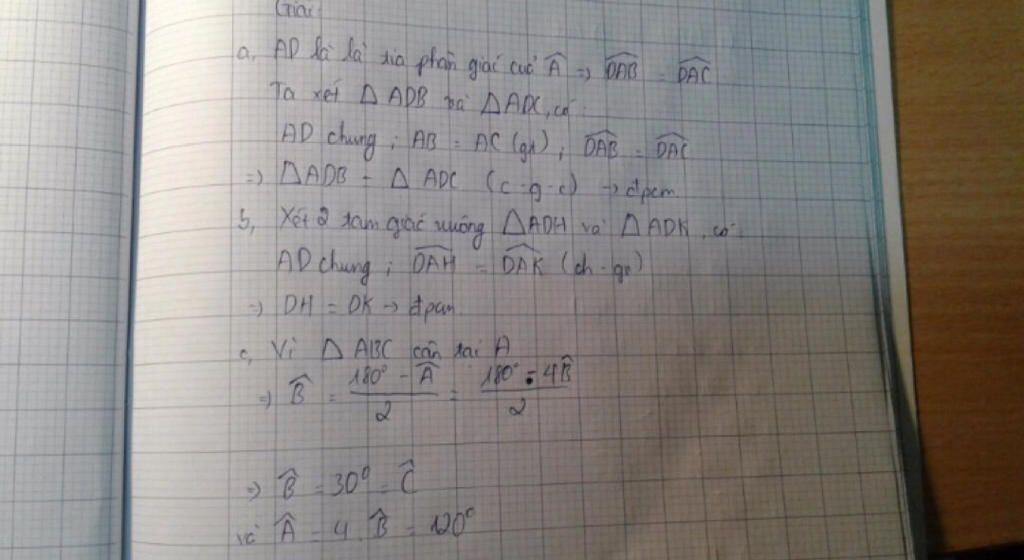 Giải:
a, AD là là tia phân giác của  ⇒ DAB̂ = DAĈ
Ta xét Δ ADB và Δ ADC, có:
AD chung ; AB = AC (gt) ; DAB̂ = DAĈ
⇒ Δ ADB = Δ ADC (c-g-c) → đpcm
b, Xét 2 tam giác vuông Δ ADH và Δ ADK, có:
AD chung ; DAĤ = DAK̂ (ch - gn)
⇒ DH = DK → đpcm
c, Vì Δ ABC cân tại A
⇒ B̂ = (180° - Â)/2 = (180° - 4B̂)/2
⇒ B̂ = 30° = Ĉ
và  = 4. B̂ = 120°